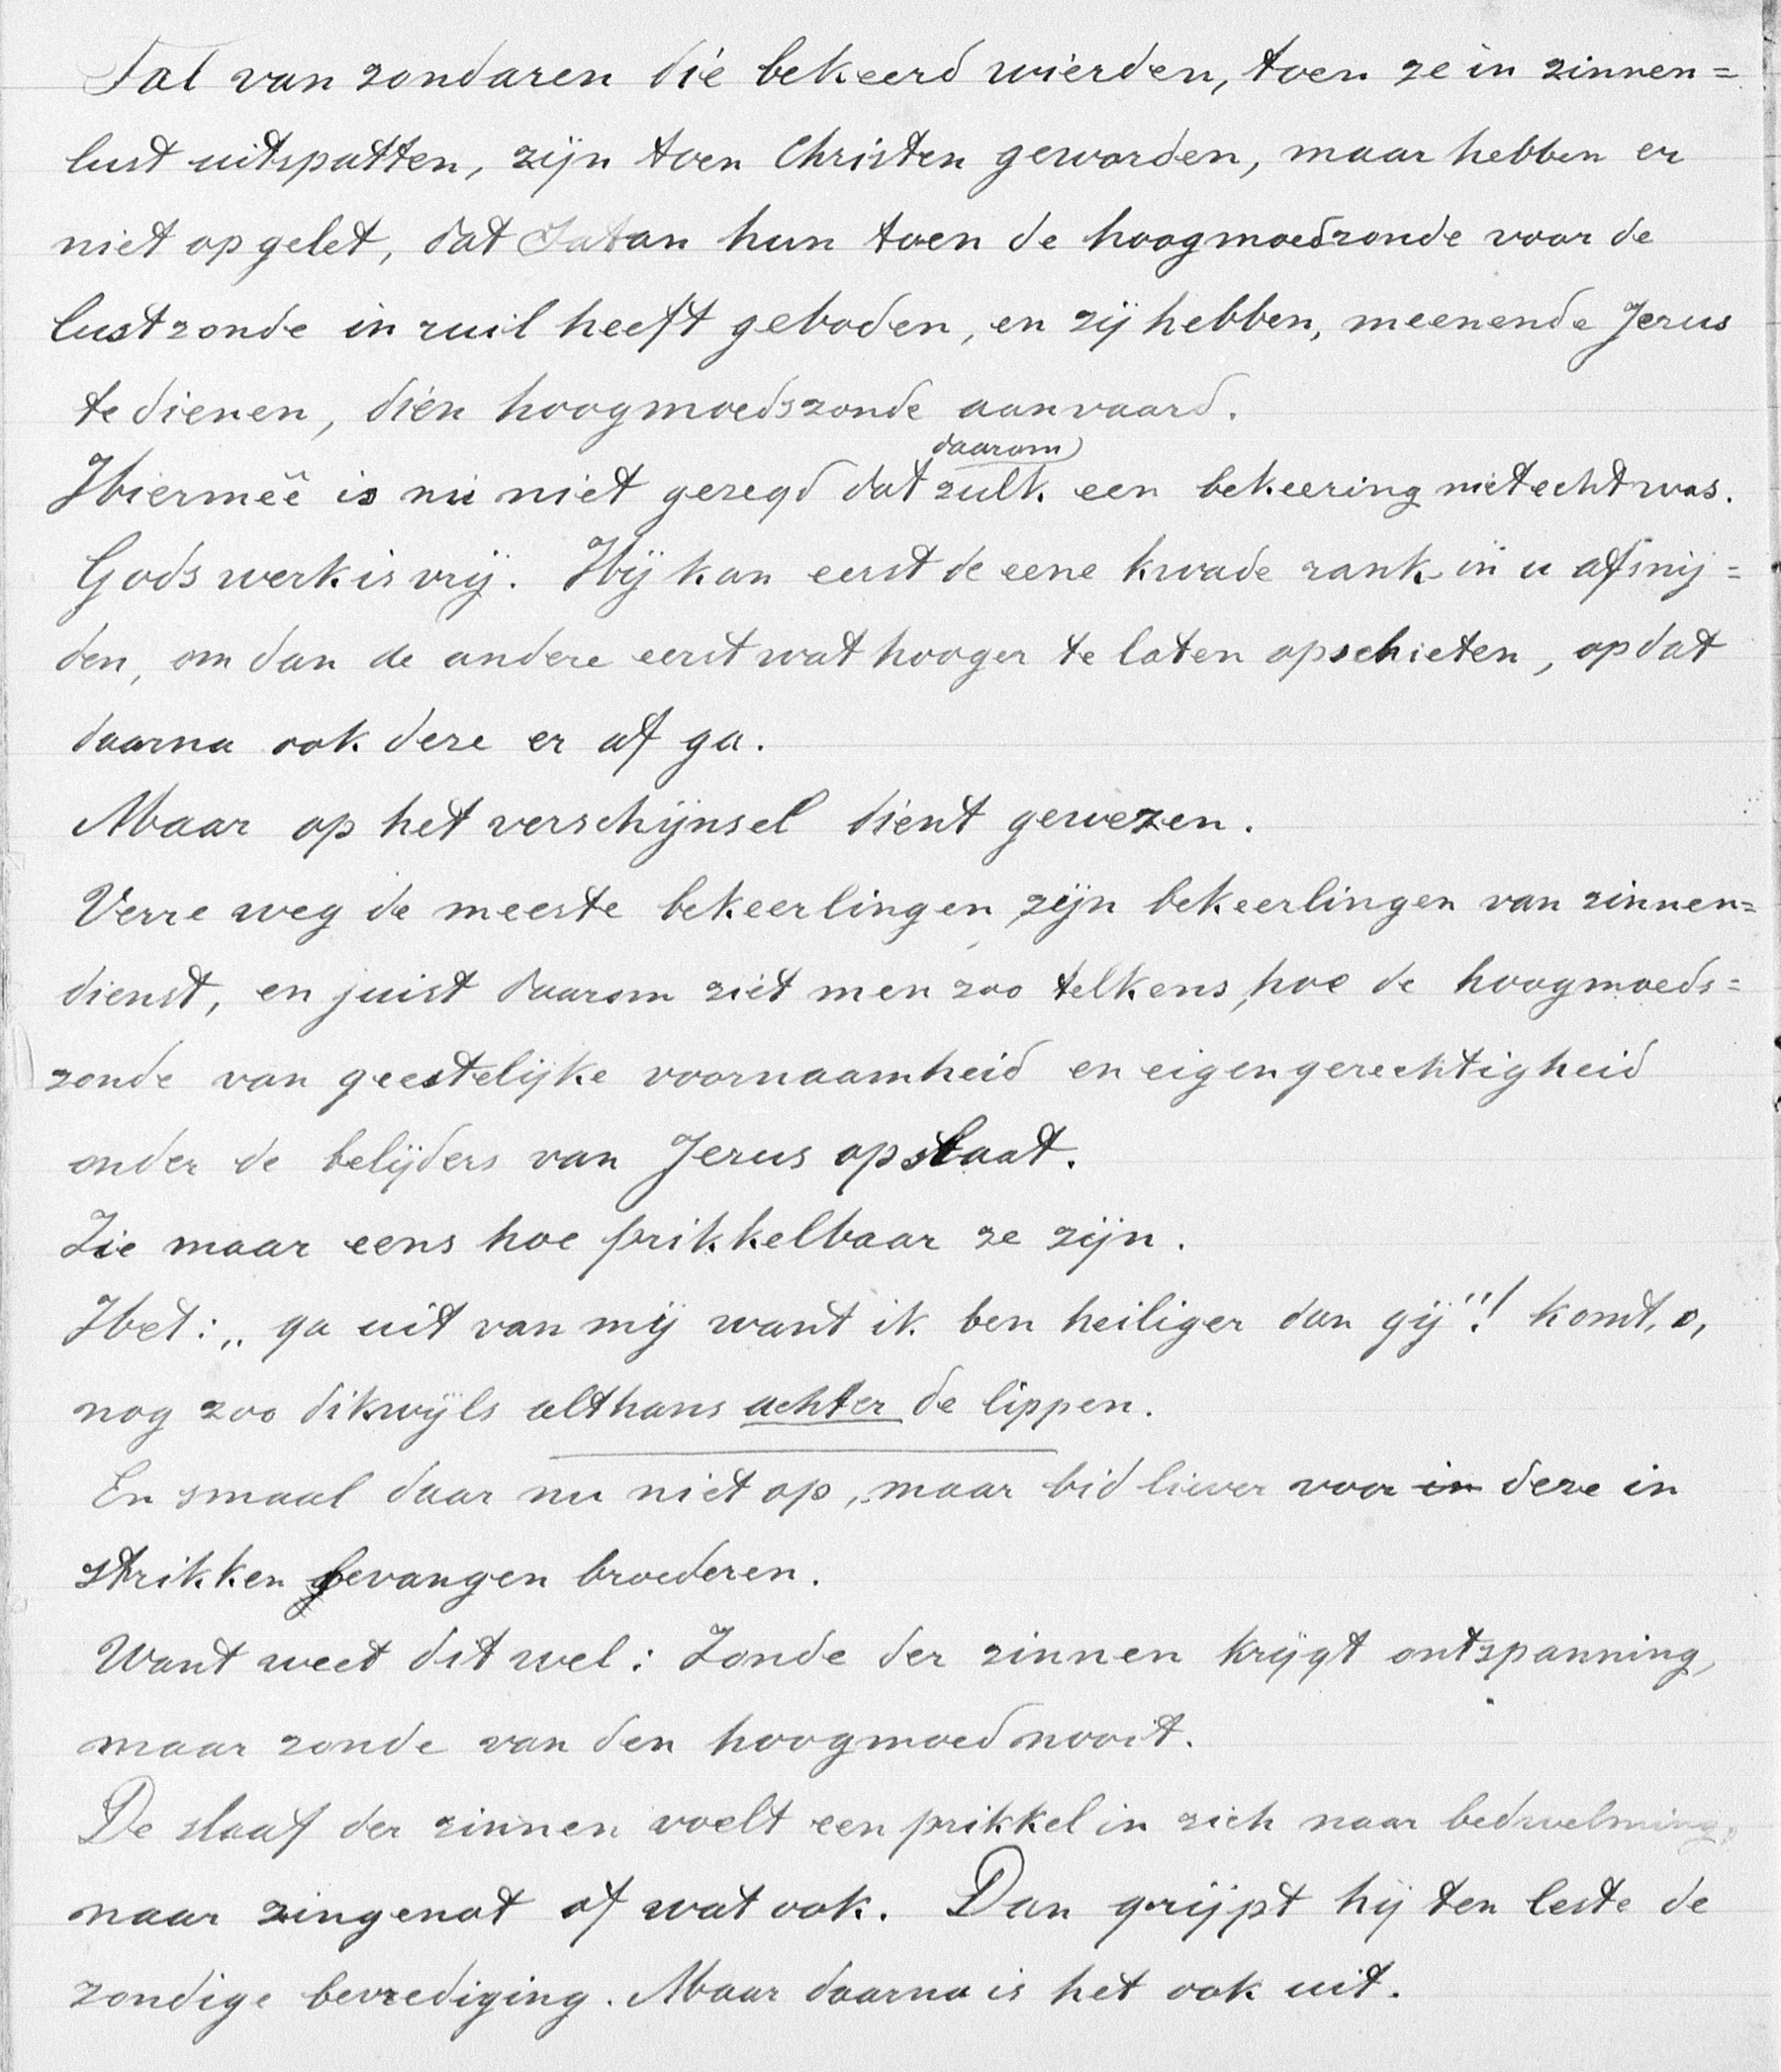 Tal van zondaren die bekeerd wierden, toen ze in zinnen=
lust uitspatten, zijn toen Christen geworden, maar hebben er
niet op gelet, dat Satan hun toen de hoogmoedzonde voor de
lustzonde in ruil heeft geboden, en zij hebben, meenende Jezus
te dienen, dién hoogmoedszonde aanvaard.
daarom
Hiermeê is nu niet gezegd dat zulk een bekeering niet echt was.
Gods werk is vrij. Hij kan eerst de eene kwade rank in u afsnij=
den, om dan de andere eerst wat hooger te laten opschieten, opdat
daarna ook deze er af ga.
Maar op het verschijnsel dient gewezen.
Verre weg de meeste bekeerlingen zijn bekeerlingen van zinnen=
dienst, en juist daarom ziet men zoo telkens, hoe de hoogmoeds=
zonde van geestelijke voornaamheid en eigengerechtigheid
onder de belijders van Jezus opstaat.
Zie maar eens hoe prikkelbaar ze zijn.
Het: „ga uit van mij want ik ben heiliger dan gij"! komt, o,
nog zoo dikwijls althans achter de lippen.
En smaal daar nu niet op, maar bid liever voor in deze in
strikken gevangen broederen.
Want weet dit wel: Zonde der zinnen krijgt ontspanning,
maar zonde van den hoogmoed nooit.
De slaaf der zinnen voelt een prikkel in zich naar bedwelming,
naar zingenot of wat ook. Dan grijpt hij ten leste de
zondige bevrediging. Maar daarna is het ook uit.